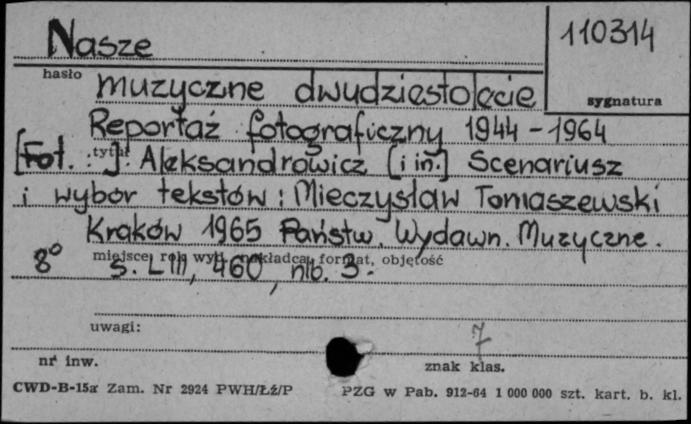 Nasze
110314
hasło
muzyczne dwudziestolecie
sygnatura
Reportaż fotograficzny 1944-1964
tytuł
[Fot. : ] Aleksandrowicz [i in.] Scenariusz
i wybór tekstów: Mieczysław Tomaszewski
Kraków 1965 Państw. Wydawn. Muzyczne.
miejsce, rok wyd., nakładca, format, objętość
8° s. LIII, 460, nlb. 3.
uwagi:
7
nr inw.
znak klas.
CWD-B-15a Zam. Nr 2924 PWH/Łź/P
PZG w Pab. 912-64 1 000 000 szt. kart. b. kl.